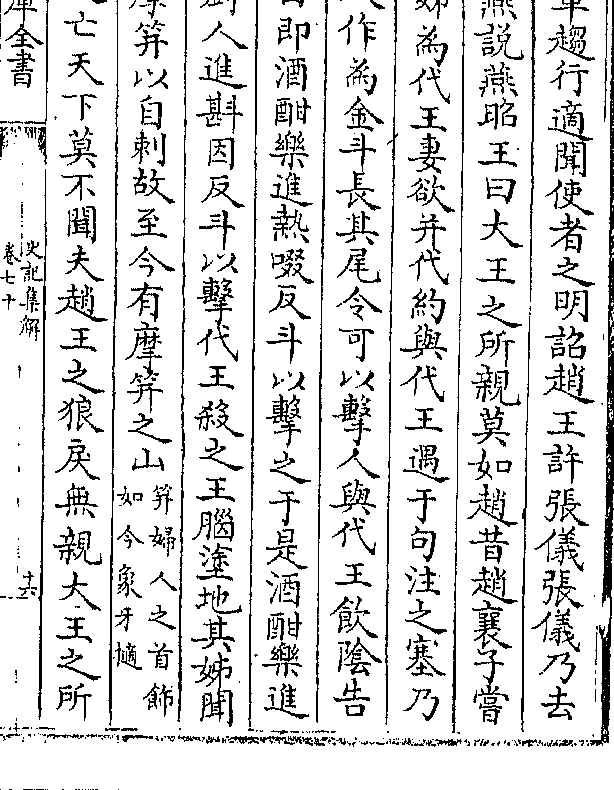 車趨行適聞使者之明詔趙王許張儀張儀乃去
燕說燕昭王曰大王之所親莫如趙昔趙襄子嘗
姊為代王妻欲并代約與代王遇于句注之塞乃
人作為金斗長其尾令可以擊人與代王飲陰告
曰即酒酣樂進熱啜反斗以擊之于是酒酣樂進
廚人進斟因反斗以擊代王殺之王腦塗地其姊聞
摩笄以自刺故至今有摩笄之山
笄婦人之首飾
如今象牙擿
亡天下莫不聞夫趙王之狼戾無親大王之所
庫全書
史記集解
卷七十
十六